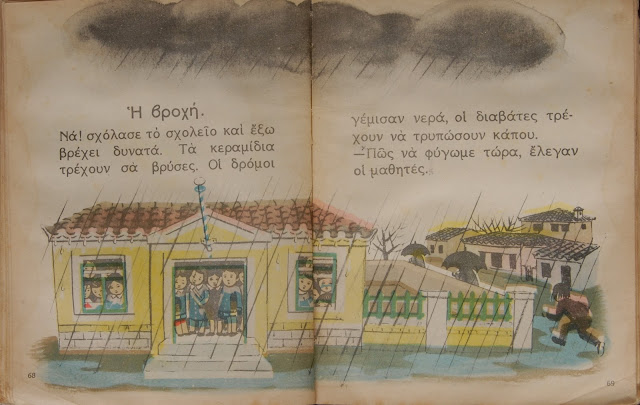 Ἡ βροχή.
Νά! σχόλασε τὸ σχολεῖο καὶ ἔξω
βρέχει δυνατά. Τὰ κεραμίδια
τρέχουν σὰ βρύσες. Οἱ δρόμοι
γέμισαν νερά, οἱ διαβάτες τρέ-
χουν νὰ τρυπώσουν κάπου.
—Πῶς νὰ φύγωμε τώρα, ἔλεγαν
οἱ μαθητές.
68
69